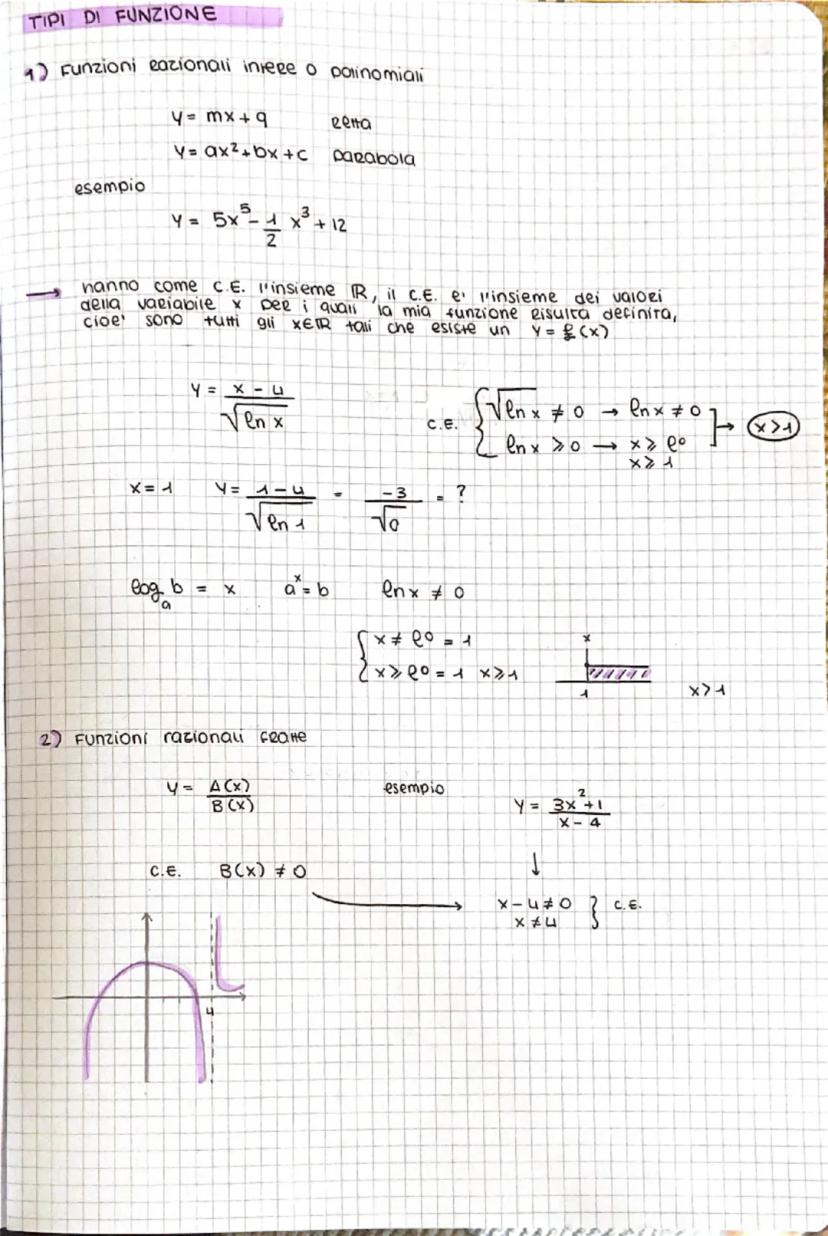 TIPI DI FUNZIONE
1) Funzioni razionali intere o polinomiali
y = mx + q retta
y = ax² + bx + c parabola
esempio
y = 5x⁵ - 1/2 x³ + 12
→ hanno come C.E. l'insieme ℝ, il C.E. e' l'insieme dei valori
della variabile x per i quali la mia funzione risulta definita,
cioe' sono tutti gli x∈ℝ tali che esiste un y = f(x)
y = x - 4 / √ln x
C.E. { √ln x ≠ 0 → ln x ≠ 0
ln x ⩾ 0 → x ⩾ e⁰ ] → x > 1
x ⩾ 1
x = 1 y = 1 - 4 / √ln 1 = -3 / √0 = ?
logₐ b = x aˣ = b ln x ≠ 0
{ x ≠ e⁰ = 1
x ⩾ e⁰ = 1 x ⩾ 1
x
1
x > 1
2) Funzioni razionali fratte
y = A(x) / B(x) esempio y = 3x² + 1 / x - 4
C.E. B(x) ≠ 0 ↓
→ x - 4 ≠ 0 } C.E.
x ≠ 4
4